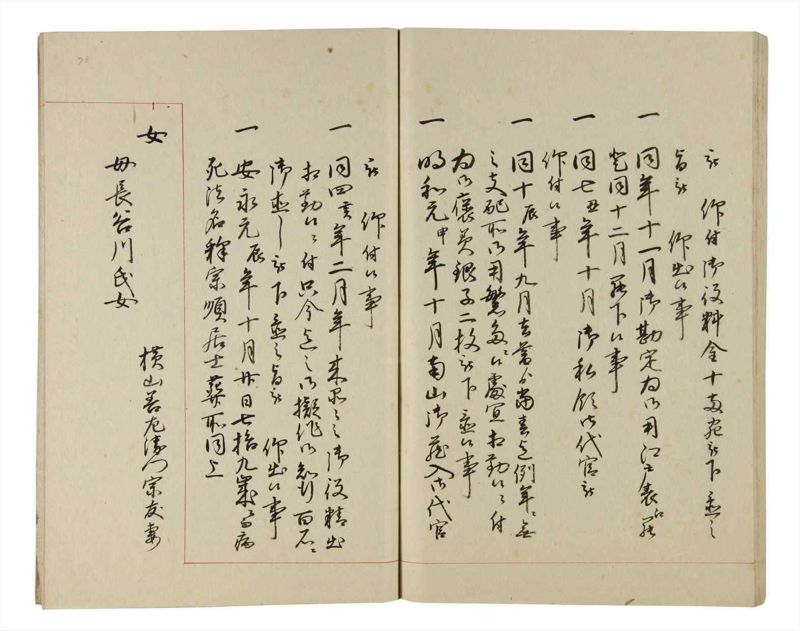 被 仰付御役料金十両宛被下置之
旨被 仰出候事
一 同年十一月御勘定為御用江戸表江罷
登同十二月罷下候事
一 同七丑年十月御私領御代官被
仰付候事
一 同十辰年九月去暮より当春迄例年ニ無
之支配所御用繁多ニ候処宜相勤候ニ付
為御褒美銀子二枚被下置候事
一 明和元申年十月南山御蔵入御代官
被 仰付候事
一 同四亥年二月年来家々之御役精出
相勤候ニ付只今迄之御擬作御知行百石ニ
御直し被下置之旨被 仰出候事
一 安永元辰年十月廿日七拾九歳ニ而病
死法名釋宗順居士葬所同上
女
母長谷川氏女
横山善左衛門宗友妻